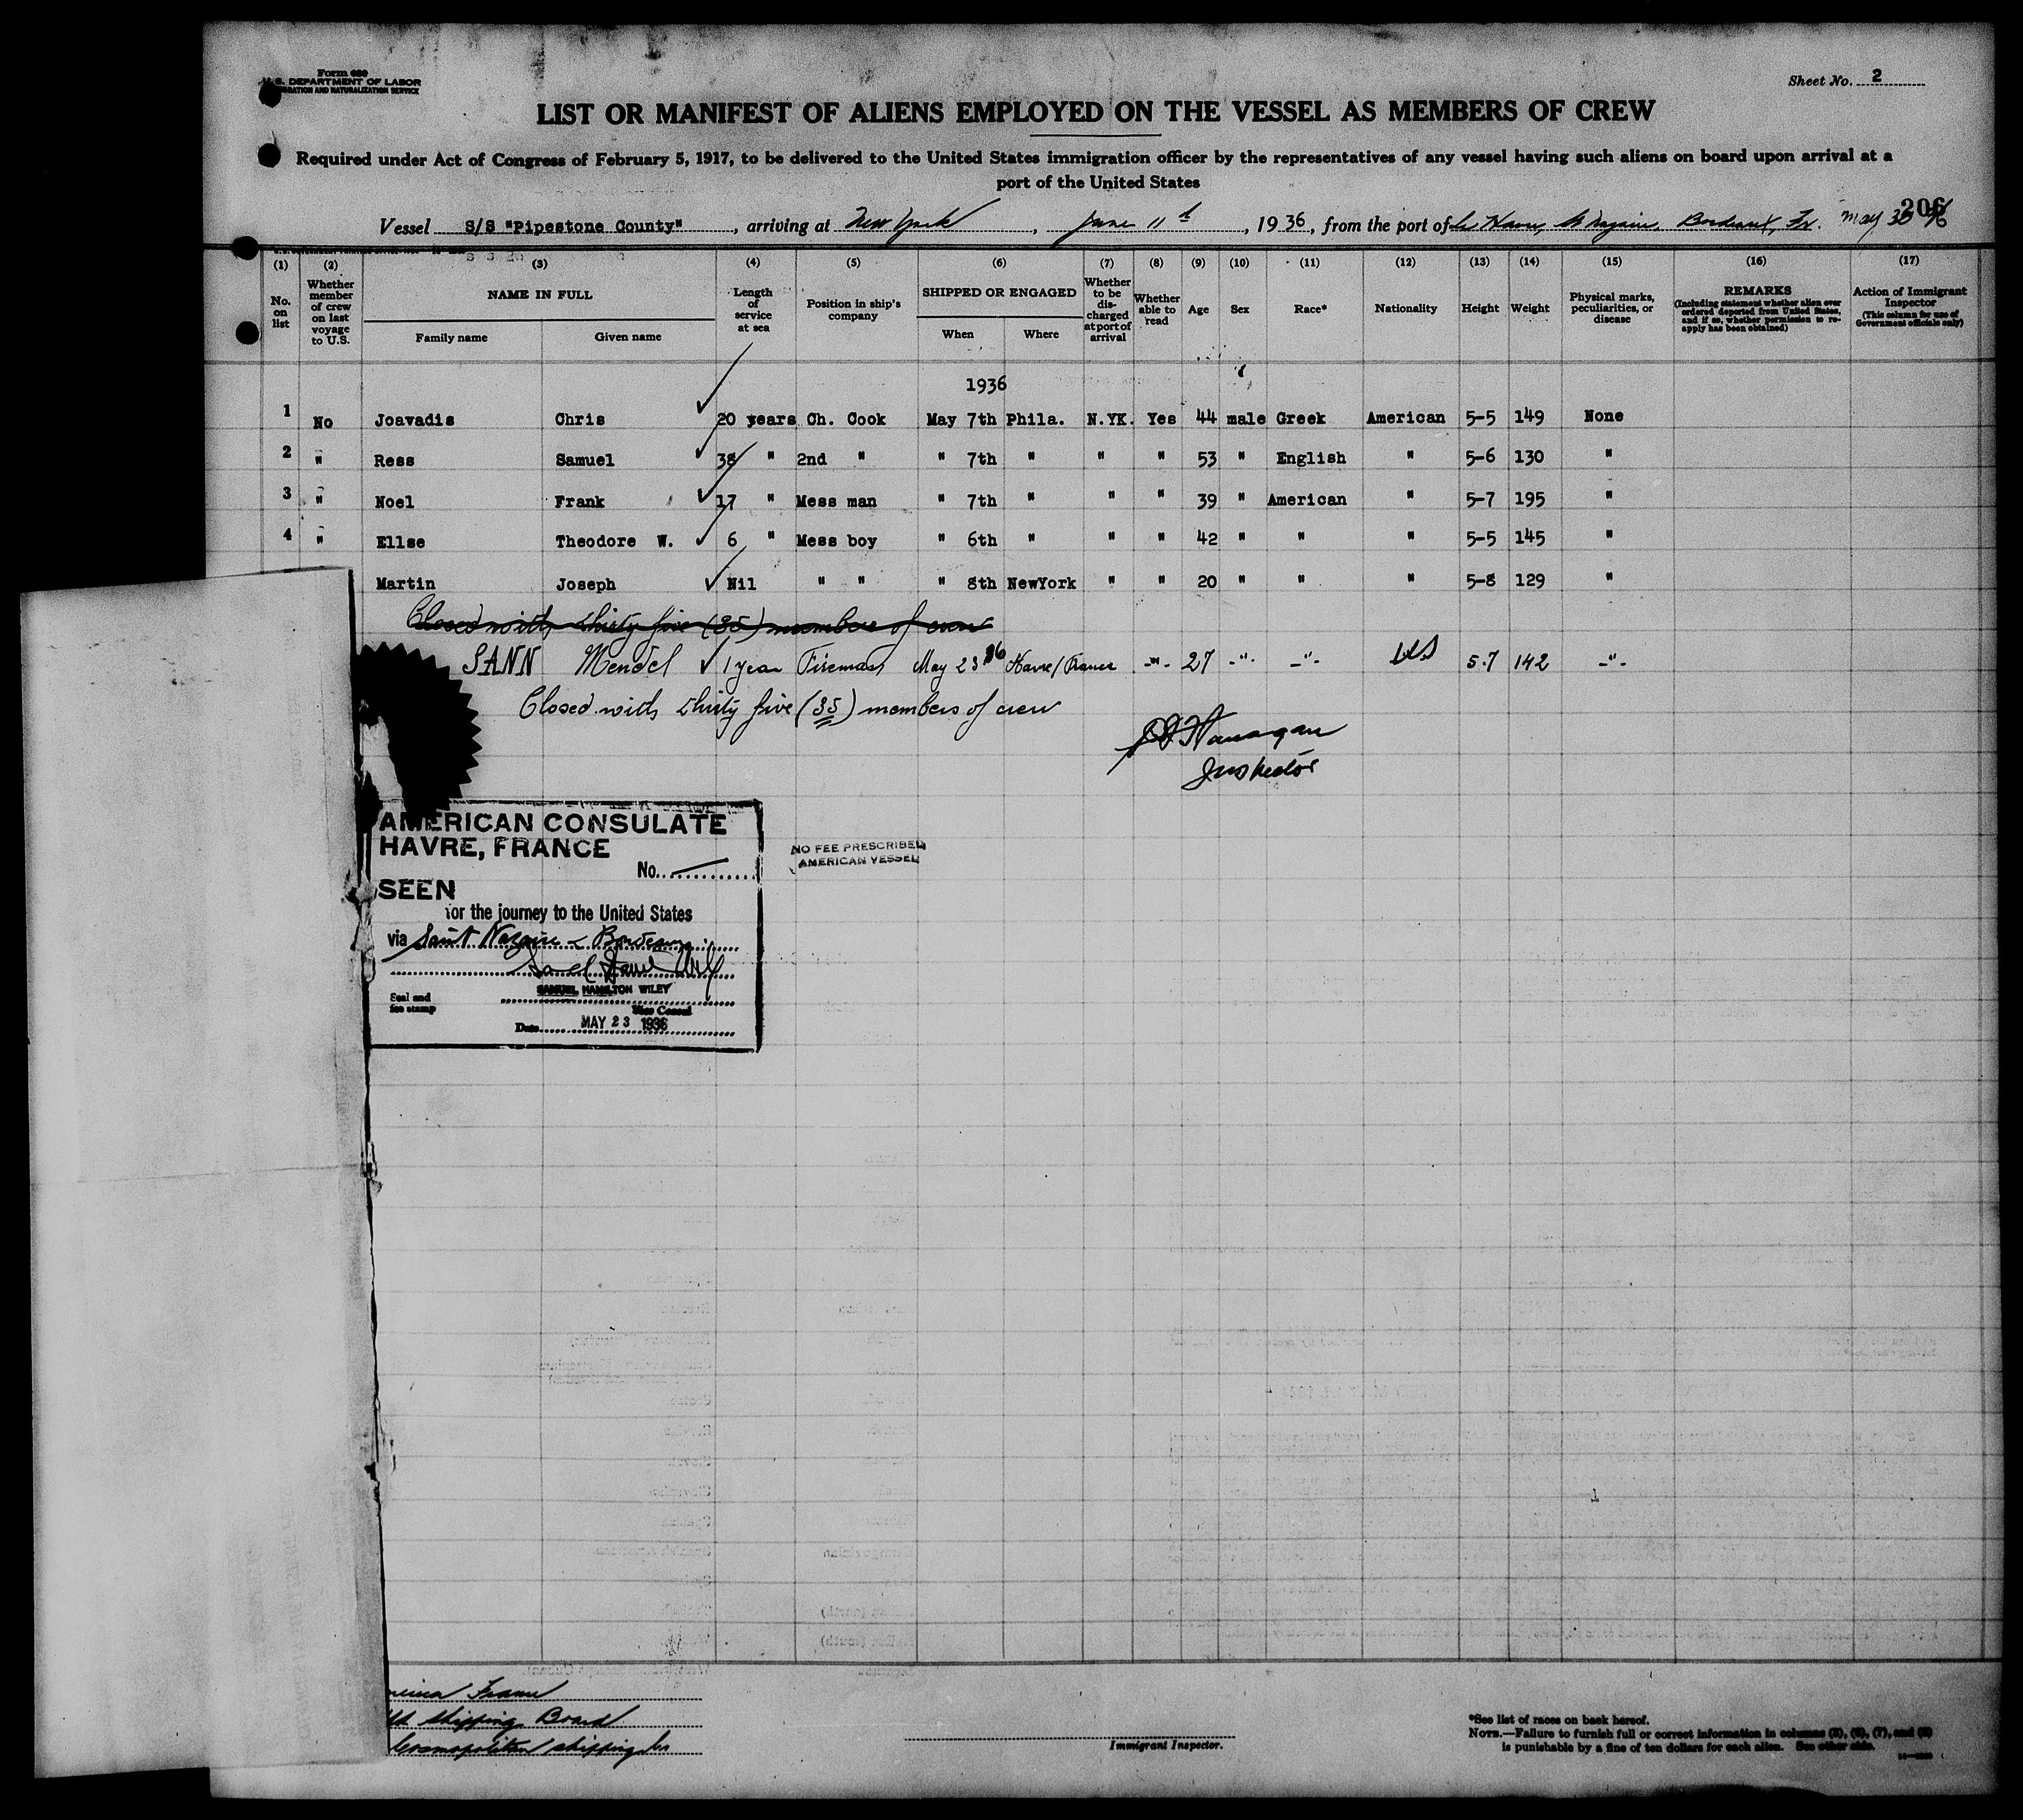 Form 680
U.S. DEPARTMENT OF LABOR
IMMIGRATION AND NATURALIZATION SERVICE
Sheet No. 2
LIST OR MANIFEST OF ALIENS EMPLOYED ON THE VESSEL AS MEMBERS OF CREW
Required under Act of Congress of February 5, 1917, to be delivered to the United States immigration officer by the representatives of any vessel having such aliens on board upon arrival at a
port of the United States
206
Vessel S/S "Pipestone County", arriving at New York, June 11th, 1936, from the port of Le Havre, St Nazaire, Bordeaux, Fr. May 30
(1) (2) (3) (4) (5) (6) (7) (8) (9) (10) (11) (12) (13) (14) (15) (16) (17)
No. on list
Whether member of crew on last voyage to U.S.
NAME IN FULL
Family name Given name
Length of service at sea
Position in ship's company
SHIPPED OR ENGAGED
When Where
Whether to be discharged at port of arrival
Whether able to read
Age
Sex
Race*
Nationality
Height
Weight
Physical marks, peculiarities, or disease
REMARKS
(Including statement whether alien ever ordered deported from United States, and if so, whether permission to re-apply has been obtained)
Action of Immigrant Inspector
(This column for use of Government officials only)
1936
1 No Joavadis Chris 20 years Ch. Cook May 7th Phila. N.YK. Yes 44 male Greek American 5-5 149 None
2 " Ress Samuel 38 " 2nd " " 7th " " " 53 " English " 5-6 130 "
3 " Noel Frank 17 " Mess man " 7th " " " 39 " American " 5-7 195 "
4 " Ellse Theodore W. 6 " Mess boy " 6th " " " 42 " " " 5-5 145 "
Martin Joseph Nil " " " 8th NewYork " " 20 " " " 5-8 129 "
Closed with thirty five (35) members of crew
SANN Mendel 1 year Fireman May 23 36 Havre/France -"- 27 -"- -"- US 5.7 142 -"-
Closed with thirty five (35) members of crew
Inspector
AMERICAN CONSULATE
HAVRE, FRANCE
No.
NO FEE PRESCRIBED
AMERICAN VESSEL
SEEN
for the journey to the United States
via Saint Nazaire & Bordeaux
SAMUEL HAMILTON WILEY
Seal and fee stamp
Vice Consul
Date MAY 23 1936
France
Shipping Board
Cosmopolitan Shipping Co
Immigrant Inspector.
*See list of races on back hereof.
NOTE.—Failure to furnish full or correct information in columns (2), (6), (7), and (8)
is punishable by a fine of ten dollars for each alien. See other side.